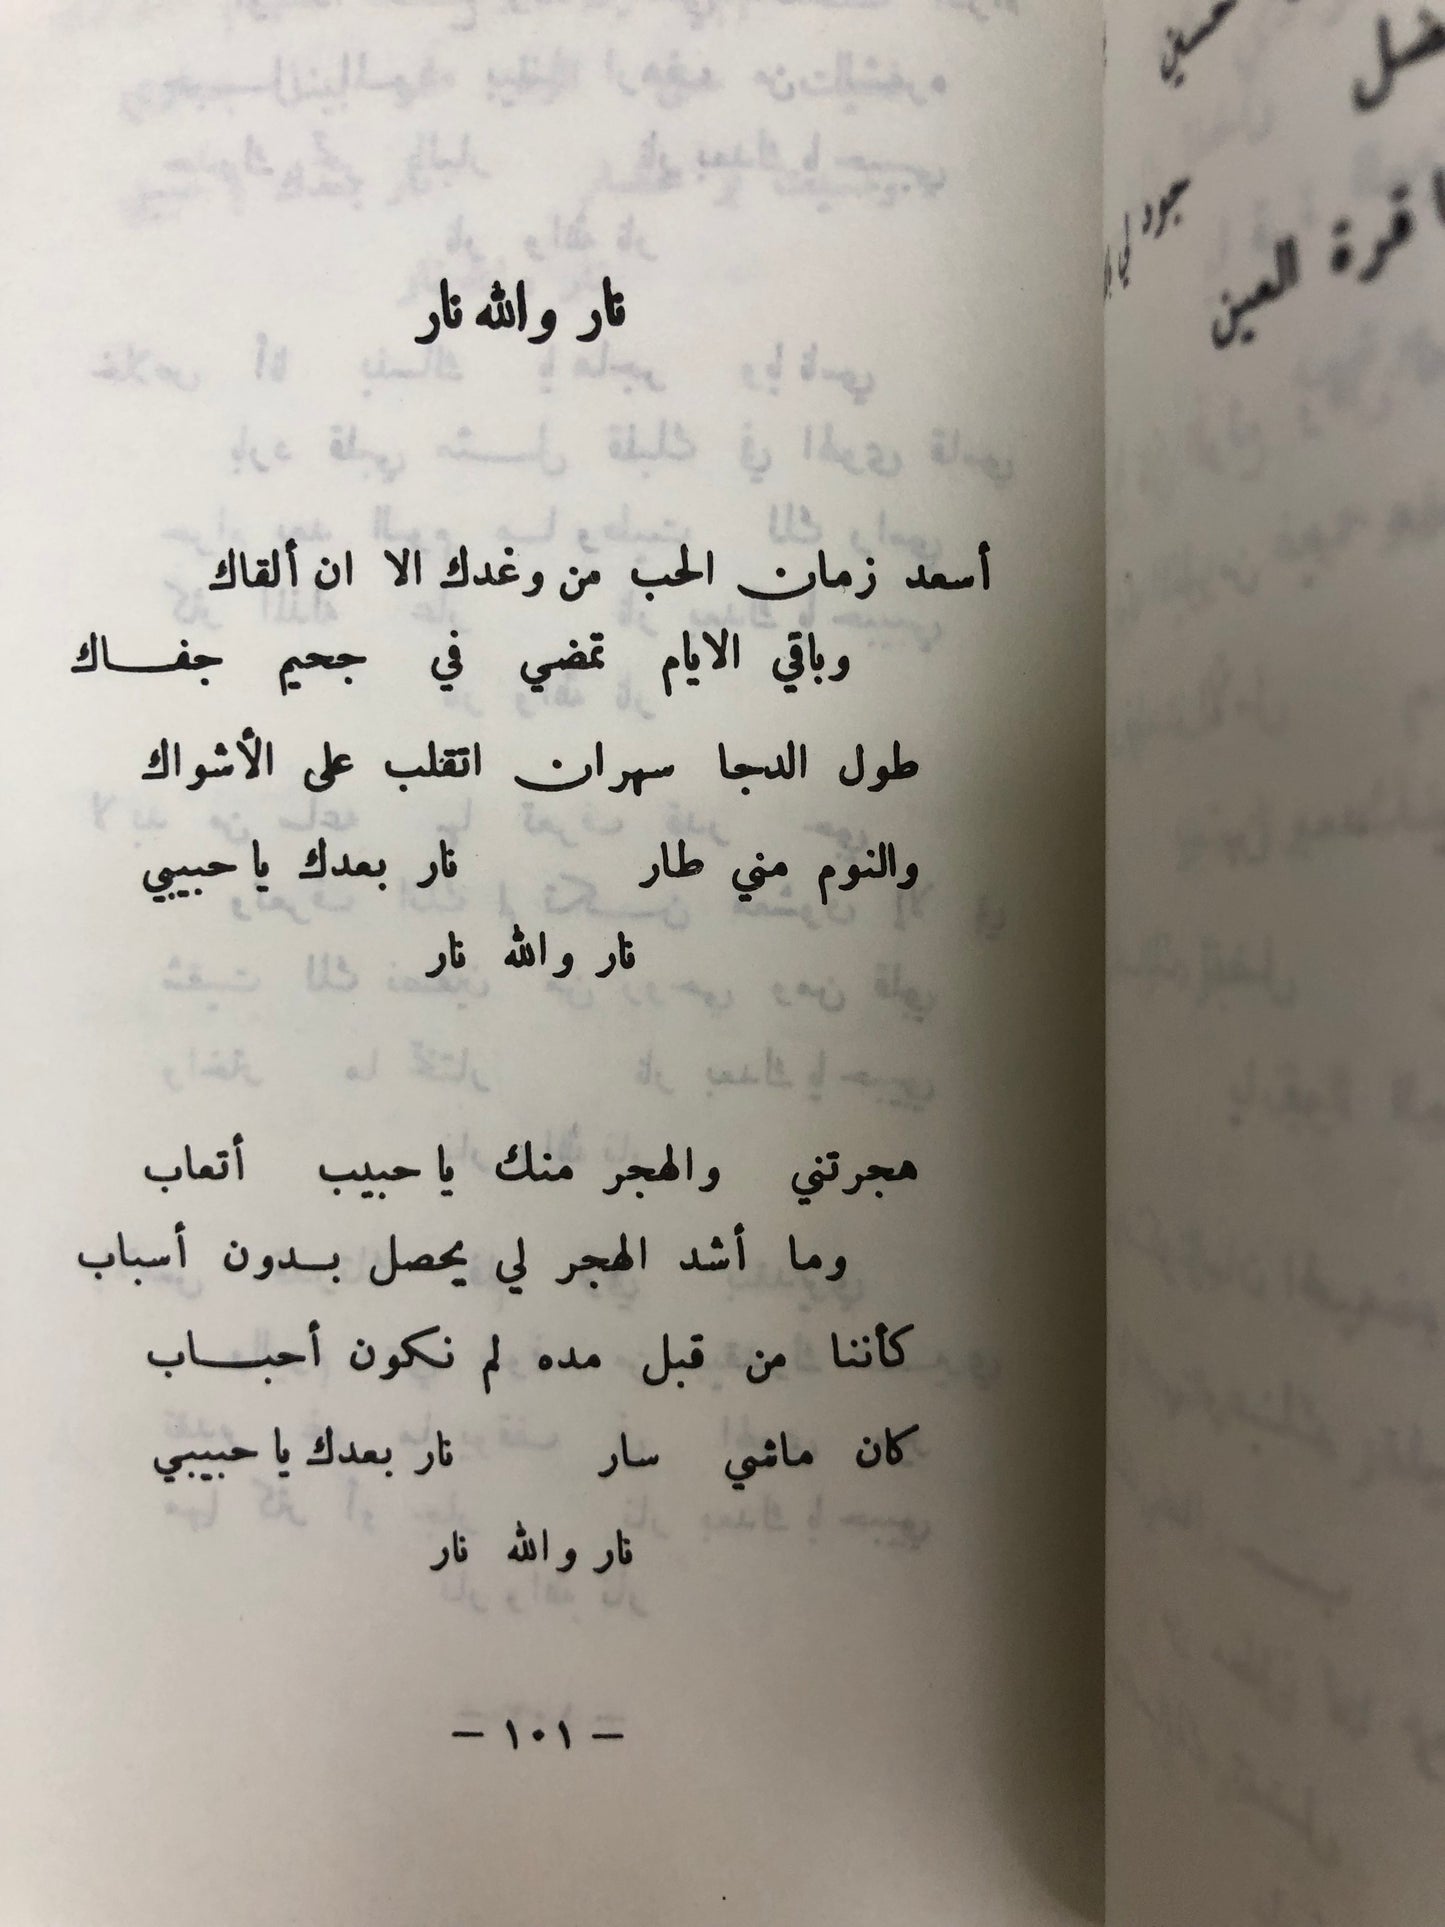 نار والله نار
أسعد زمان الحب من وغدك الا ان ألقاك
وباقي الايام تمضي في جحيم جفاك
طول الدجا سهران اتقلب على الأشواك
والنوم مني طار نار بعدك يا حبيبي
نار والله نار
هجرتني والهجر منك يا حبيب أتعاب
وما أشد الهجر لي يحصل بدون أسباب
كأننا من قبل مده لم نكون أحباب
كان ماشي سار نار بعدك يا حبيبي
نار والله نار
– ١٠١ –
حسني
جود لي
قرة العين